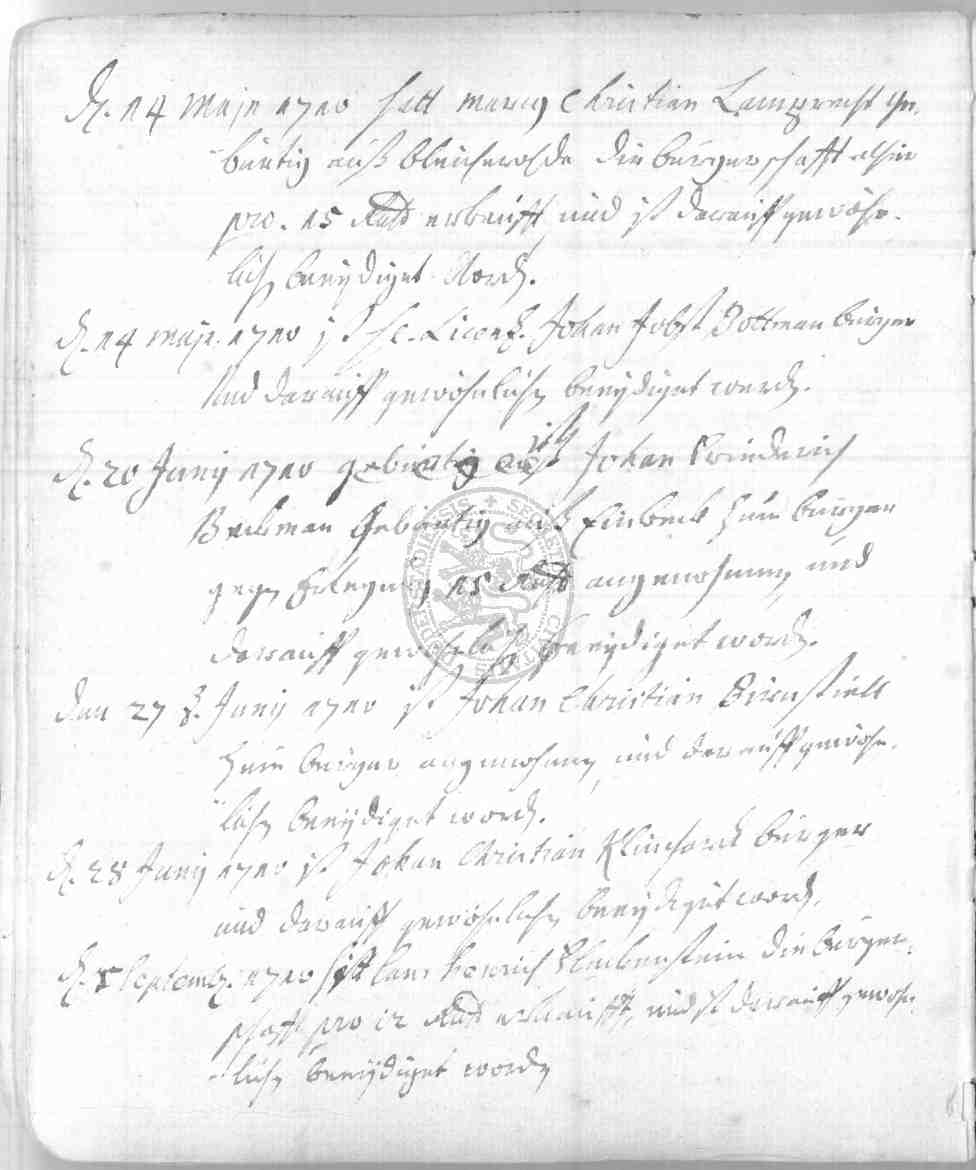 d. 14 Maji 1710 hatt Marcus Christian Lamprecht ge-
bürtig auß Bleicherohde die bürgerschafft alhier
pro. 15 Rthlr erkaufft und ist darauff gewöhn-
lich beeydiget word.
d. 14 Maji. 1710 ist H. Licent. Johan Jobst Dottman bürger
Und darauff gewöhnlich beeydiget word.
d. 20 Junij 1710 gebürtig auß ist Johan Friederich
Gebürtig auß Einbeck zum bürger
gegen Erlegung 15 Rthlr angenohmen und
darauff gewöhnlich beeydiget word.
den 27 Junij 1710 ist Johan Christian
zum bürger angenohmen und darauff gewöhn-
lich beeydiget word.
d. 28 Junij 1710 ist Johan Christian Klinckhardt bürger
und darauff gewöhnlich beeydiget word.
d. Septemb. 1710 hatt Hans Henrich die bürger-
schafft pro 12 Rthlr erkaufft, und ist darauff gewöhn-
lich beeydiget worden